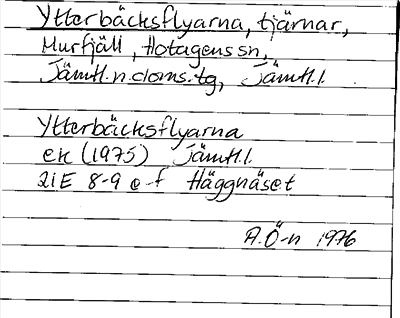 Ytterbäcksflyarna, tjärnar,
Murfjäll, Hotagens sn,
Jämtl.n.doms.tg, Jämtl.l.
Ytterbäcksflyarna
ek (1975) Jämtl.l.
21E 8-9 e-f Häggnäset
A.Ö-n 1976